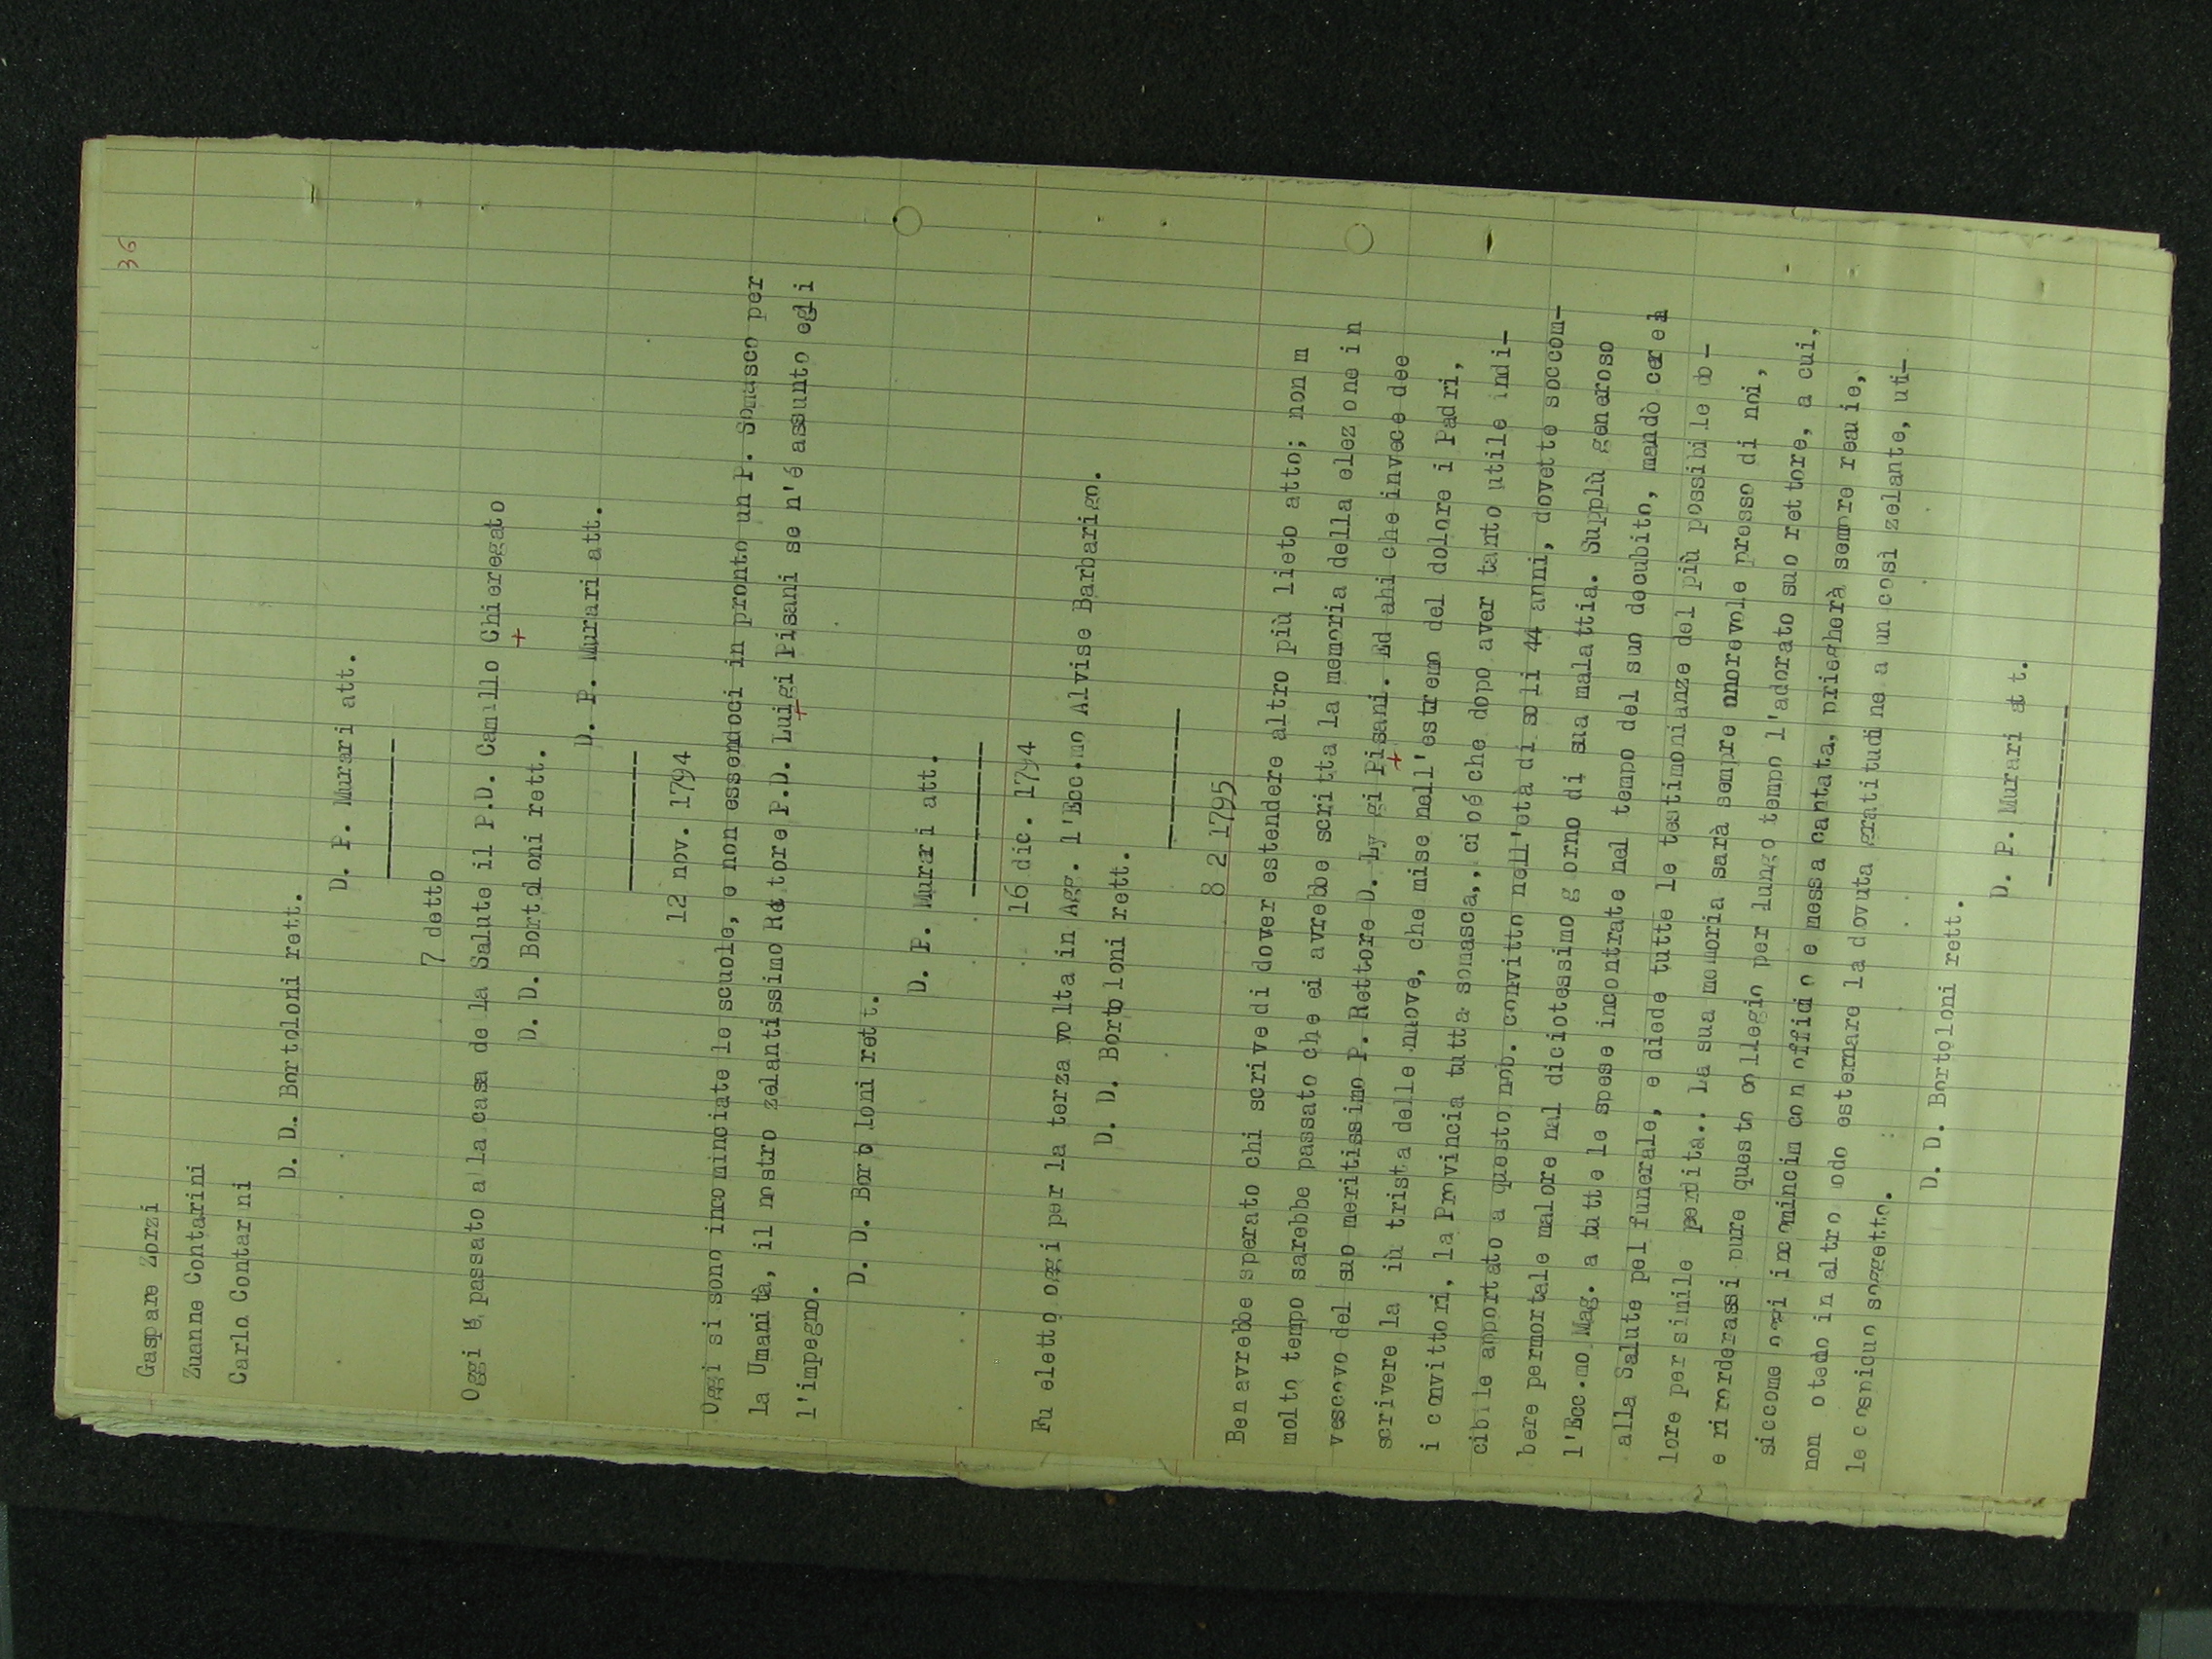 36
Gaspare Zorzi
Zuanne Contarini
Carlo Contar ni
D. D. Bortoloni rett.
D. P. Murari att.
7 detto
Oggi è passato a la casa de la Salute il P.D. Camillo Chieregato
D. D. Bortoloni rett.
D. P. Murari att.
12 nov. 1794
Oggi si sono incominciate le scuole, e non essendoci in pronto un P. Somasco per
la Umanità, il nostro zelantissimo Rettore P.D. Luigi Pisani se n'é assunto egli
l'impegno.
D. D. Bortoloni rett.
D. P. Murari att.
16 dic. 1794
Fu eletto oggi per la terza volta in Agg. l'Ecc.mo Alvise Barbarigo.
D. D. Bortoloni rett.
8 2 1795
Ben avrebbe sperato chi scrive di dover estendere altro più lieto atto; non m
molto tempo sarebbe passato che ei avrebbe scritta la memoria della elez one in
vescovo del suo meritissimo P. Rettore D. Ly gi Pisani. Ed ahi che invece dee
scrivere la iù trista delle nuove, che mise nell'estremo del dolore i Padri,
i convittori, la Provincia tutta somasca,, cioé che dopo aver tanto utile indi-
cibile apportato a questo nob. convitto nell'età di soli 44 anni, dovette soccom-
bere permortale malore nal diciotessimo g orno di sua malattia. Supplù generoso
l'Ecc.mo Mag. a tutte le spese incontrate nel tempo del suo decubito, mandò cere
alla Salute pel funerale, e diede tutte le testimonianze del più possibile do-
lore per simile perdita.. La sua momoria sarà sempre onorevole presso di noi,
e ricorderassi pure questo collegio per lungo tempo l'adorato suo rettore, a cui,
siccome oggi incomincim con offidio e messa cantata, priegherà sempre requie,
non otedo in altro odo esternare la dovuta gratitudine a un così zelante, uti-
le cospicuo soggetto.
D. D. Bortoloni rett.
D. P. Murari att.